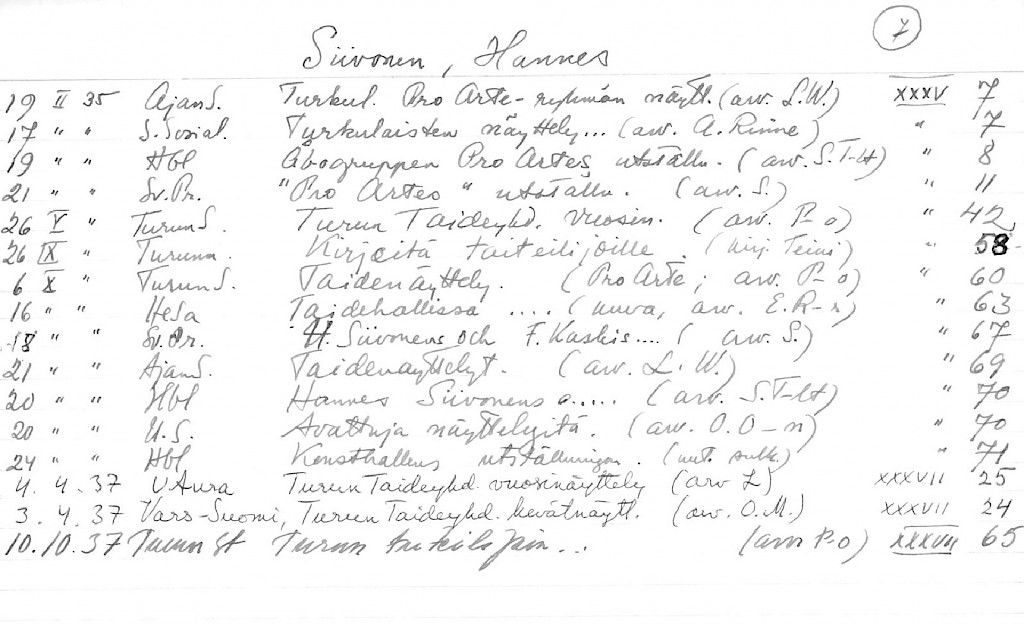 7
Siivonen, Hannes
19 II 35 AjanS. Turkul. Pro Arte-ryhmän näytt. (arv. L.W.) XXXV 7
17 " " S.Sosial. Turkulaisten näyttely... (arv. A. Rinne) " 7
19 " " Hbl Åbogruppen Pro Artes utställn. (arv. S.T-lt) " 8
21 " " Sv.Pr. "Pro Artes" utställn. (arv. S.) " 11
26 V " TurunS. Turun Taideyhd. vuosin. (arv. P-o) " 42
26 IX " Turunm. Kirjeitä taiteilijoille. (kirj. Teini) " 58
6 X " TurunS. Taidenäyttely. (Pro Arte; arv. P-o) " 60
16 " " HeSa Taidehallissa .... (kuva, arv. E.R-r) " 63
18 " " Sv.Pr. H. Siivonens och F. Kaskis.... (arv. S.) " 67
21 " " AjanS. Taidenäyttelyt. (arv. L.W.) " 69
20 " " Hbl Hannes Siivonens o..... (arv. S.T-lt) " 70
20 " " U.S. Avattuja näyttelyitä. (arv. O.O-n) " 70
24 " " Hbl Konsthallens utställningar. (uut. sulk.) " 71
4. 4. 37 UAura Turun Taideyhd. vuosinäyttely (arv L) XXXVII 25
3. 4. 37 Vars-Suomi, Turun Taideyhd. kevätnäytt. (arv. O.M.) XXXVII 24
10. 10. 37 Turun St Turun taiteilijain... (arv P-o) XXXVII 65